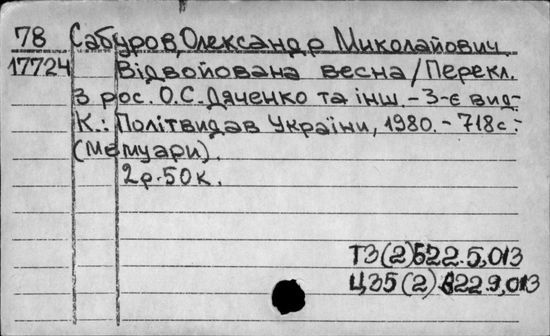 78 Сабуров, Олександр Миколайович.
17724 Відвойована весна/Перекл.
З рос. О.С. Дяченко та інш. - 3-є вид-
К.: Політвидав України, 1980. - 718с.-
(Мемуари).
2р. 50к.
ТЗ(2)522.5,013
ЦЗ5(2) 622.9,013